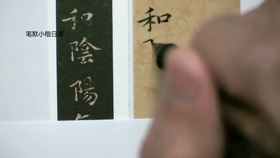 笔默小楷日课
和陰陽
和